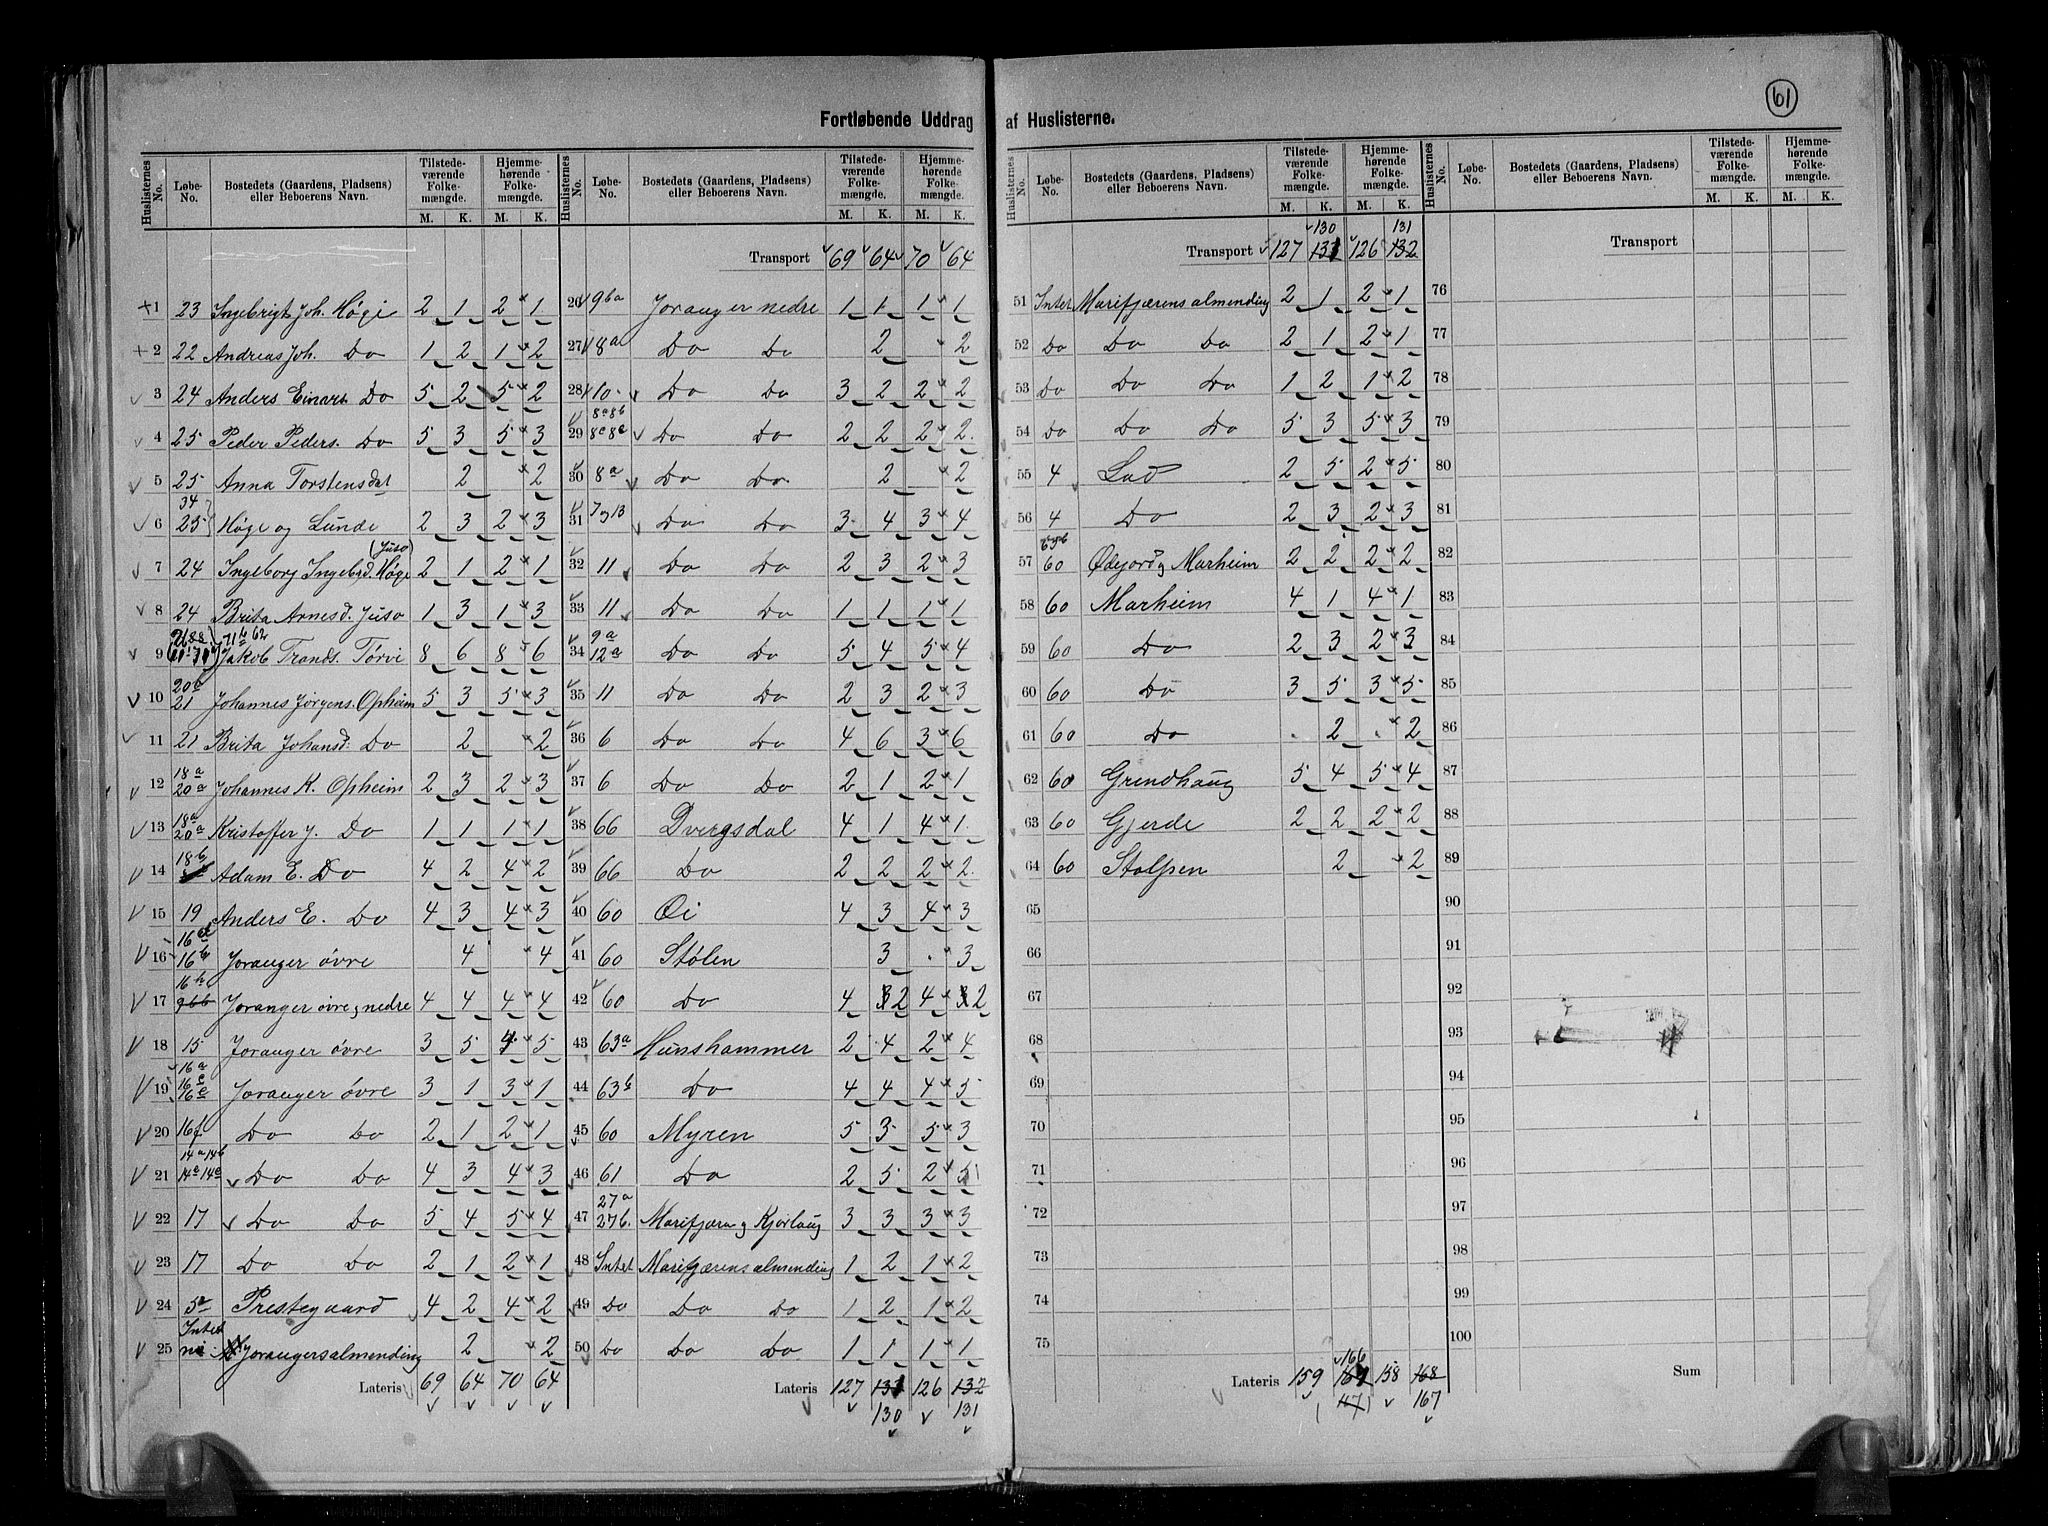 61
Fortløbende Uddrag af Huslisterne.
Huslisternes No. | Løbe-No. | Bostedets (Gaardens, Pladsens) eller Beboerens Navn. | Tilstedeværende Folkemængde. M. K. | Hjemmehørende Folkemængde. M. K.
1 23 Ingebrigt Joh. Høgi 2 1 2 1
2 22 Andreas Joh. Do 1 2 1 2
3 24 Anders Einars. Do 5 2 5 2
4 25 Peder Peders. Do 5 3 5 3
5 25 Anna Torstensdat 2 2
6 34 25 Høge og Lunde 2 3 2 3
7 24 Ingeborg Ingebrd. Høge (Juso) 2 1 2 1
8 24 Brita Arnesd. Juso 1 3 1 3
9 71b 62 Jakob Trands. Törvi 8 6 8 6
10 20a 21 Johannes Jörgens. Opheim 5 3 5 3
11 21 Brita Johansd. Do 2 2
12 18a 20a Johannes K. Opheim 2 3 2 3
13 18a 20a Kristoffer J. Do 1 1 1 1
14 18b Adam E. Do 4 2 4 2
15 19 Anders E. Do 4 3 4 3
16 16d 16b Joranger övre 4 4
17 16b 966 Joranger övre og nedre 4 4 4 4
18 15 Joranger övre 3 5 4 5
19 16a 16c 16e Joranger övre 3 1 3 1
20 16f Do Do 2 1 2 1
21 14a 14b 14a 14a Do Do 4 3 4 3
22 17 Do Do 5 4 5 4
23 17 Do Do 2 1 2 1
24 5a Prestegaard 4 2 4 2
25 Intet Jorangersalmending 2 2
Lateris 69 64 70 64
Transport 69 64 70 64
26 96a Joranger nedre 1 1 1 1
27 8a Do Do 2 2
28 10 Do Do 3 2 2 2
29 8a 8b 8c 8e Do Do 2 2 2 2
30 8a Do Do 2 2
31 7 og 13 Do Do 3 4 3 4
32 11 Do Do 2 3 2 3
33 11 Do Do 1 1 1 1
34 9a 12a Do Do 5 4 5 4
35 11 Do Do 2 3 2 3
36 6 Do Do 4 6 3 6
37 6 Do Do 2 1 2 1
38 66 Dvergsdal 4 1 4 1
39 66 Do 2 2 2 2
40 60 Øi 4 3 4 3
41 60 Stølen 3 3
42 60 Do 4 3 2 4 3 2
43 63a Hunshammer 2 4 2 4
44 63b Do 4 4 4 5
45 60 Myren 5 3 5 3
46 61 Do 2 5 2 5
47 27a 27b. Marifjæra og Kjörlaug 3 3 3 3
48 Intet Marifjærens almending 1 2 1 2
49 Do Do Do 1 2 1 2
50 Do Do Do 1 1 1 1
Lateris 127 131 126 132
130 131
130 131
Transport 127 131 126 132
51 Intet Marifjærens almending 2 1 2 1
52 Do Do Do 2 1 2 1
53 Do Do Do 1 2 1 2
54 Do Do Do 5 3 5 3
55 4 Lad 2 5 2 5
56 4 Do 2 3 2 3
57 60 Ødejord og Marheim 2 2 2 2
58 60 Marheim 4 1 4 1
59 60 Do 2 3 2 3
60 60 Do 3 5 3 5
61 60 Do 2 2
62 60 Grindhaug 5 4 5 4
63 60 Gjerde 2 2 2 2
64 60 Stolpen 2 2
65
66
67
68
69
70
71
72
73
74
75
Lateris 159 167 158 168
166
167
Transport
76
77
78
79
80
81
82
83
84
85
86
87
88
89
90
91
92
93
94
95
96
97
98
99
100
Sum